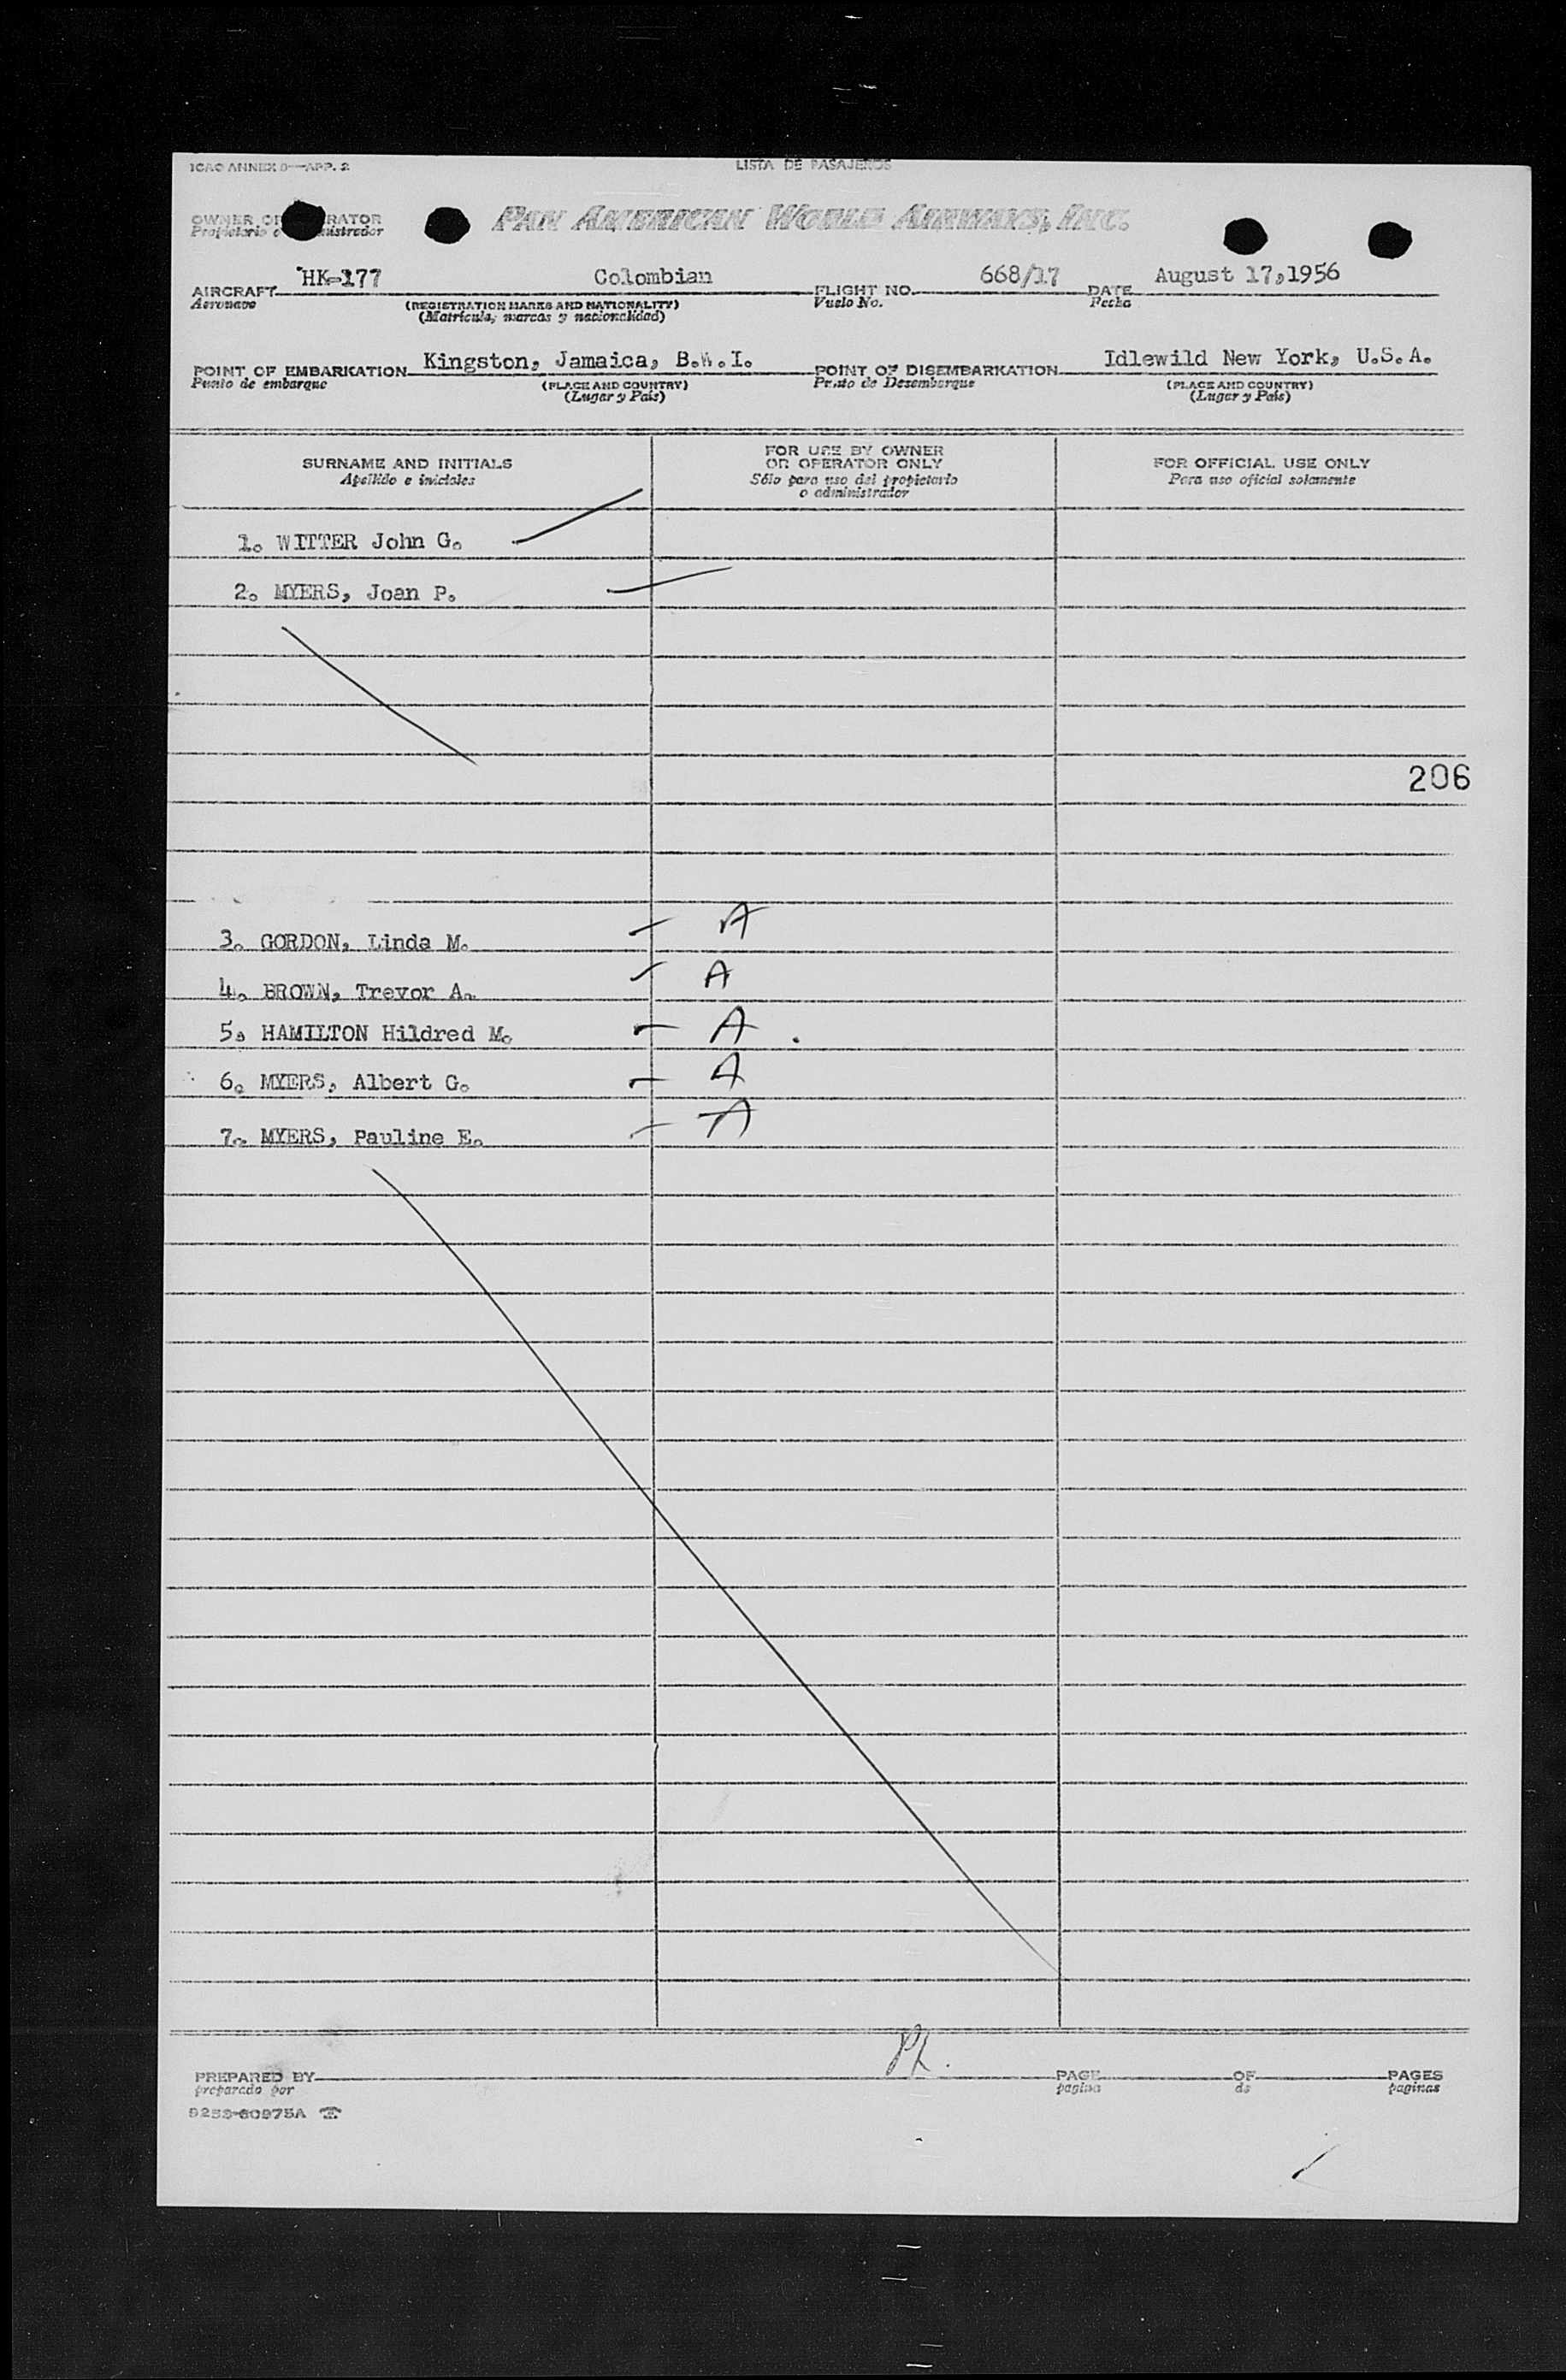 ICAO ANNEX 9—APP. 2
LISTA DE PASAJEROS
OWNER OR OPERATOR
Propietario o administrador
PAN AMERICAN WORLD AIRWAYS, INC.
AIRCRAFT HK-177 Colombian FLIGHT NO. 668/17 DATE August 17,1956
Aeronave (REGISTRATION MARKS AND NATIONALITY) Vuelo No. Fecha
(Matrícula, marcas y nacionalidad)
POINT OF EMBARKATION Kingston, Jamaica, B.W.I. POINT OF DISEMBARKATION Idlewild New York, U.S.A.
Punto de embarque (PLACE AND COUNTRY) Punto de Desembarque (PLACE AND COUNTRY)
(Lugar y País) (Lugar y País)
SURNAME AND INITIALS
Apellido e iniciales
FOR USE BY OWNER
OR OPERATOR ONLY
Sólo para uso del propietario
o administrador
FOR OFFICIAL USE ONLY
Para uso oficial solamente
1. WITTER John G.
2. MYERS, Joan P.
206
3. GORDON, Linda M. A
4. BROWN, Trevor A. A
5. HAMILTON Hildred M. A
6. MYERS, Albert G. A
7. MYERS, Pauline E. A
PREPARED BY PAGE OF PAGES
preparado por pagina de paginas